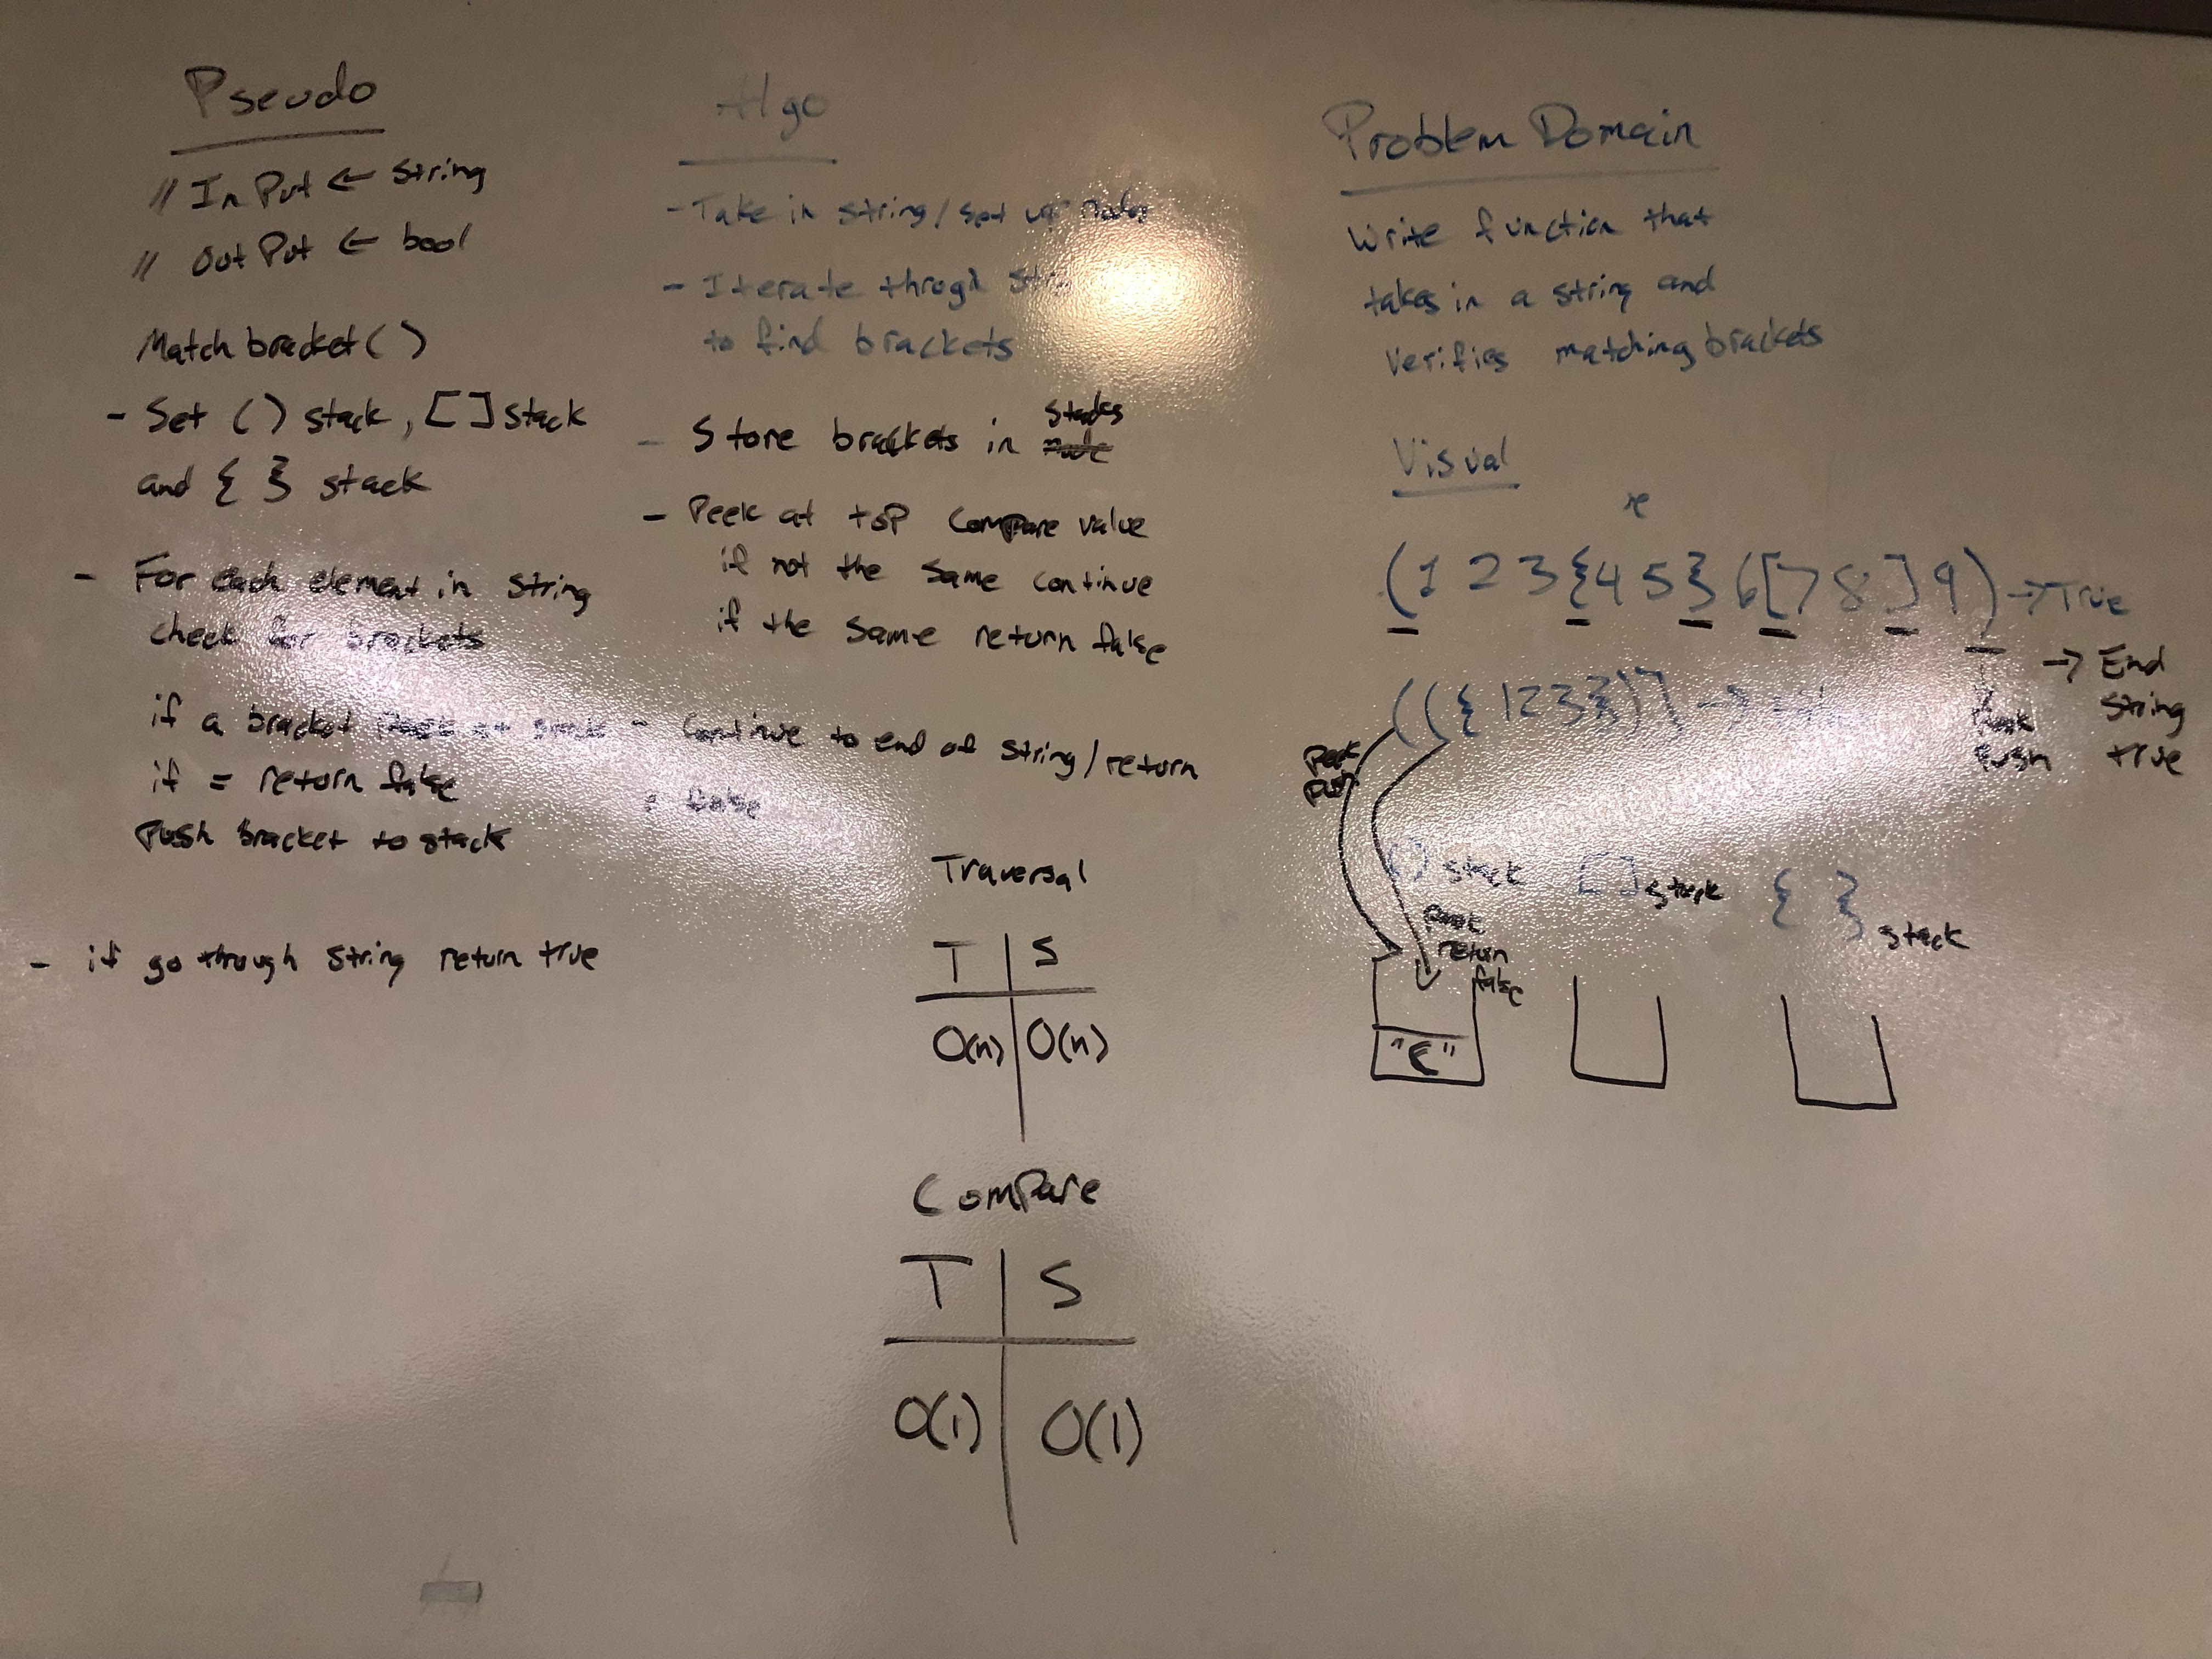 Pseudo
// InPut ← string
// OutPut ← bool
Match bracket()
- Set () stack, [] stack
and { } stack
- For each element in string
check for brackets
if a bracket Peek at stack
if = return false
Push bracket to stack
- if go through string return true
Algo
- Take in string/set up nodes
- Iterate throgh
to find brackets
stacks
- Store brackets in node
- Peek at top compare value
if not the same continue
if the same return false
- Continue to end of string/return
false
Traversal
T | S
O(n) | O(n)
Compare
T | S
O(1) | O(1)
Problem Domain
Write function that
takes in a string and
verifies matching brackets
Visual
(1 2 3 {4 5} 6[7 8 ] 9) → True
→ End
String
true
Peek
Push
(({ 123})] →
Peek
Push
() stack
[] stack
{ } stack
Peek
return
false
"("